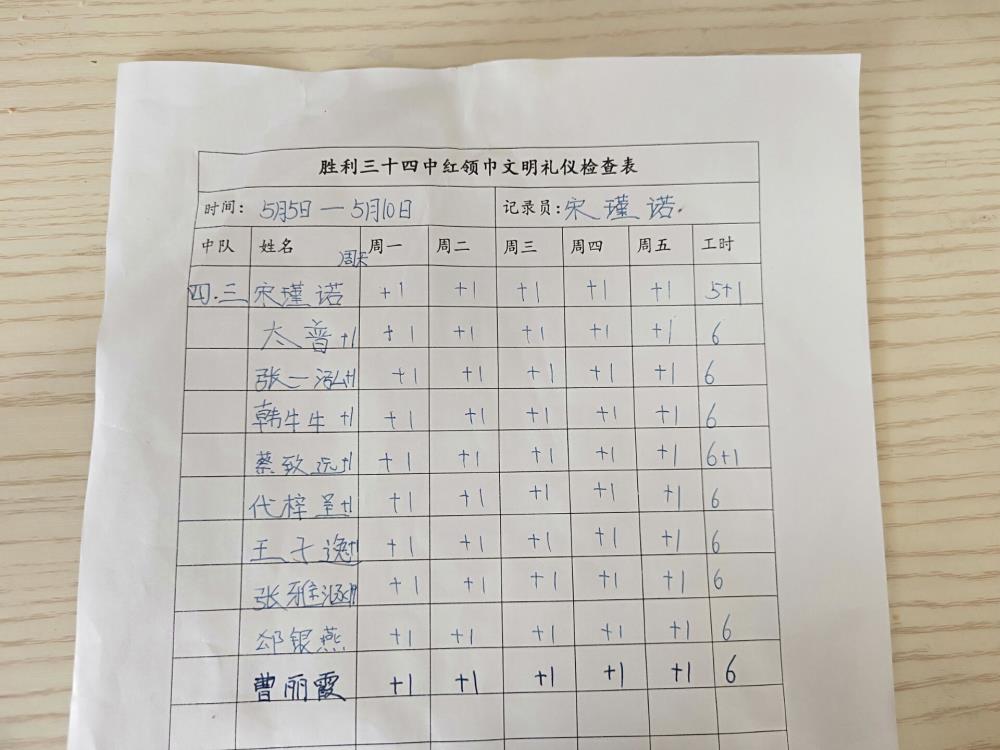 胜利三十四中红领巾文明礼仪检查表
时间: 5月5日—5月10日 记录员: 宋瑾诺.
中队 姓名 周末 周一 周二 周三 周四 周五 工时
四.三 宋瑾诺 +1 +1 +1 +1 +1 5+1
太普 +1 +1 +1 +1 +1 +1 6
张一泓 +1 +1 +1 +1 +1 +1 6
韩牛牛 +1 +1 +1 +1 +1 +1 6
蔡致远 +1 +1 +1 +1 +1 +1 6+1
代梓呈 +1 +1 +1 +1 +1 +1 6
王子逸 +1 +1 +1 +1 +1 +1 6
张雅涵 +1 +1 +1 +1 +1 +1 6
银燕 +1 +1 +1 +1 +1 6
曹丽霞 +1 +1 +1 +1 +1 6